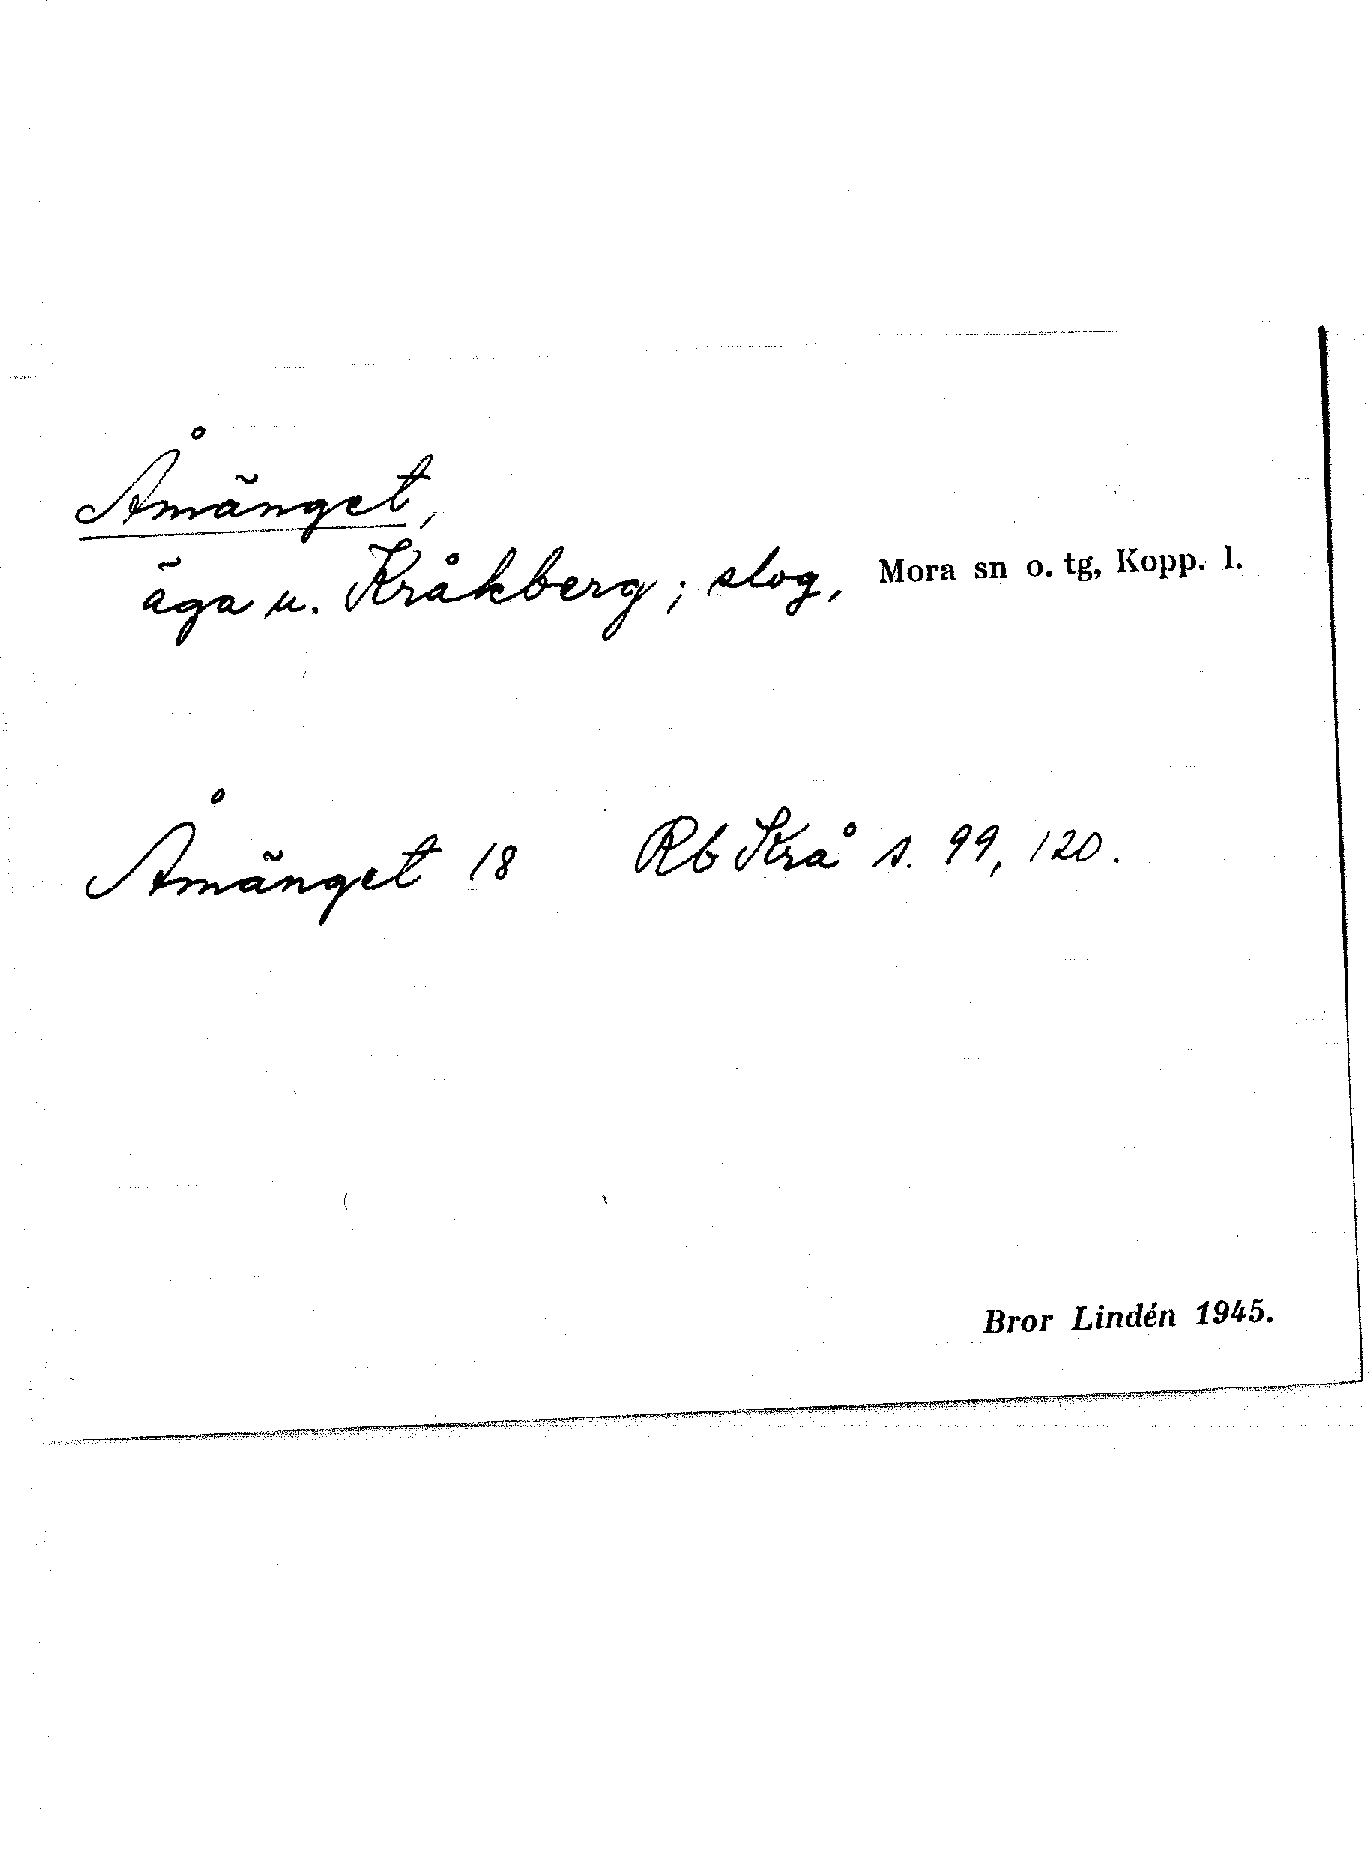 Åmänget,
äga u. Kråkberg; slog, Mora sn o. tg, Kopp. l.
Åmänget 18 Rb Krå s. 99, 120.
Bror Lindén 1945.